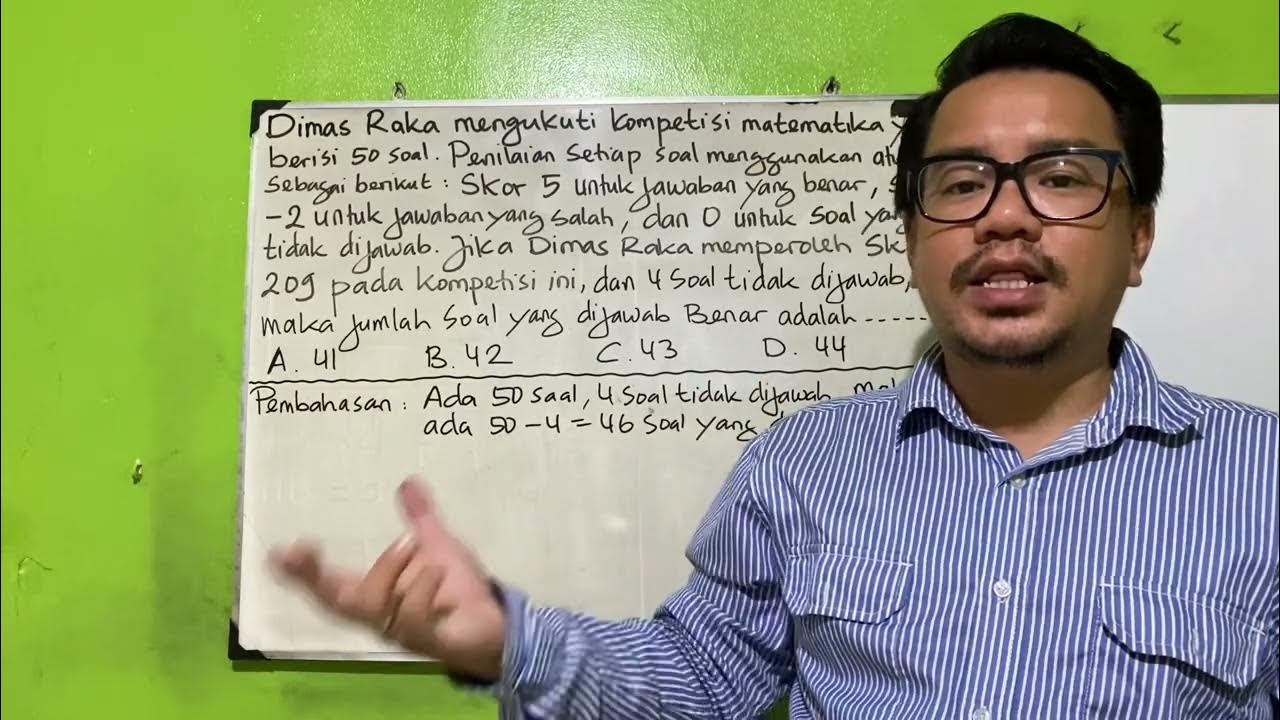 Dimas Raka mengukuti kompetisi matematika
berisi 50 soal. Penilaian setiap soal menggunakan
sebagai berikut : Skor 5 untuk jawaban yang benar,
-2 untuk jawaban yang salah, dan 0 untuk soal
tidak dijawab. Jika Dimas Raka memperoleh
209 pada kompetisi ini, dan 4 soal tidak dijawab,
maka jumlah soal yang dijawab Benar adalah -----
A. 41 B. 42 C. 43 D. 44
Pembahasan : Ada 50 saal, 4 soal tidak dijawab
ada 50 - 4 = 46 soal yang